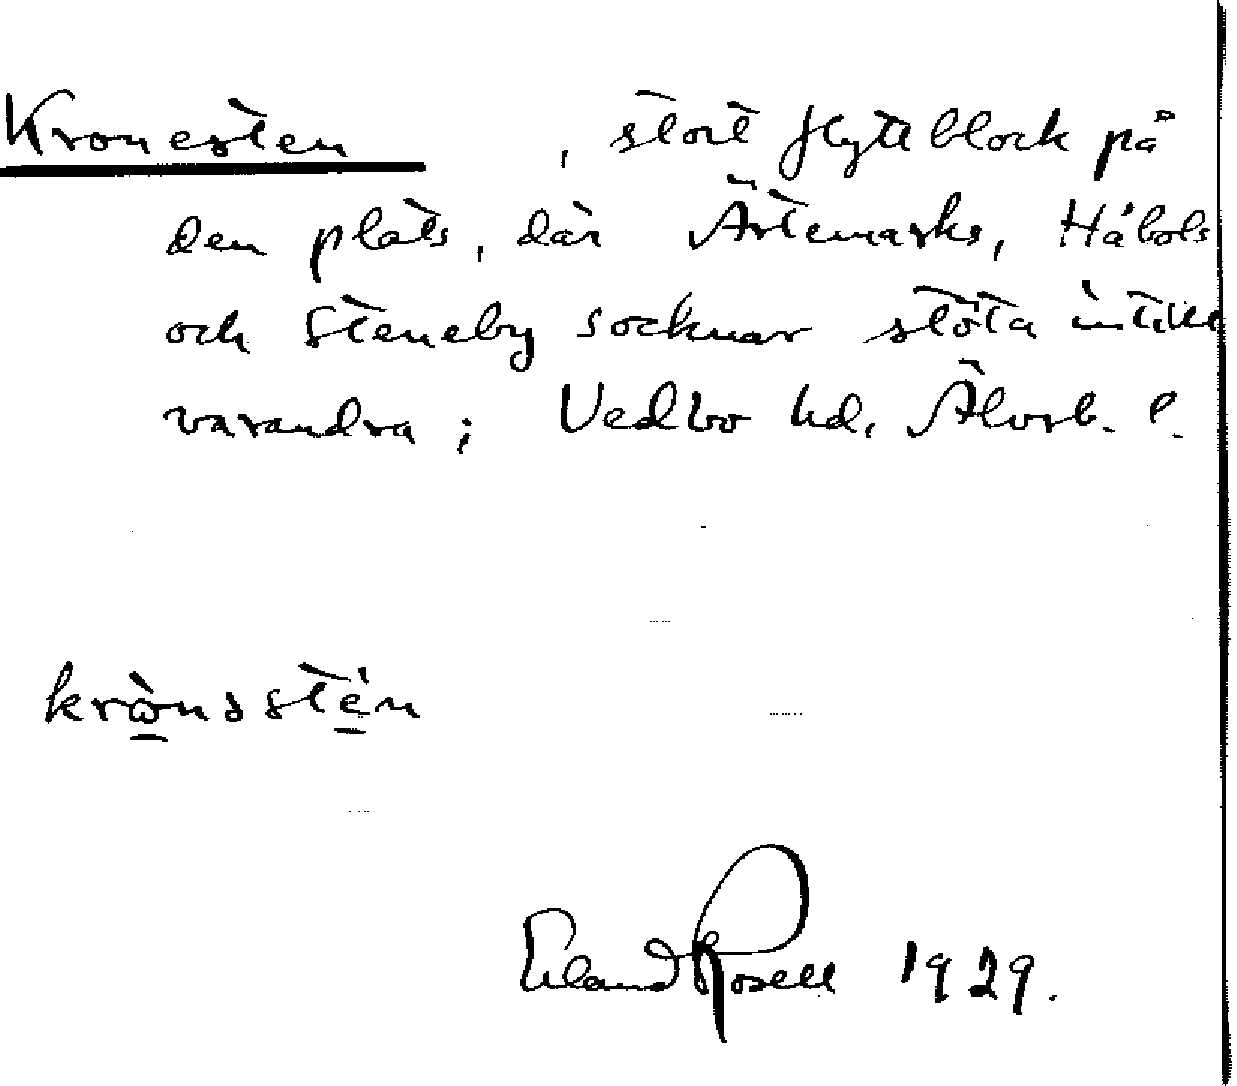 Kronesten , stort flyttblock på
den plats, där Ärtemarks, Håbols
och Steneby socknar stöta intill
varandra; Vedbo hd, Älvsb. l.
krὼnsstèn
Erland Rosell 1929.